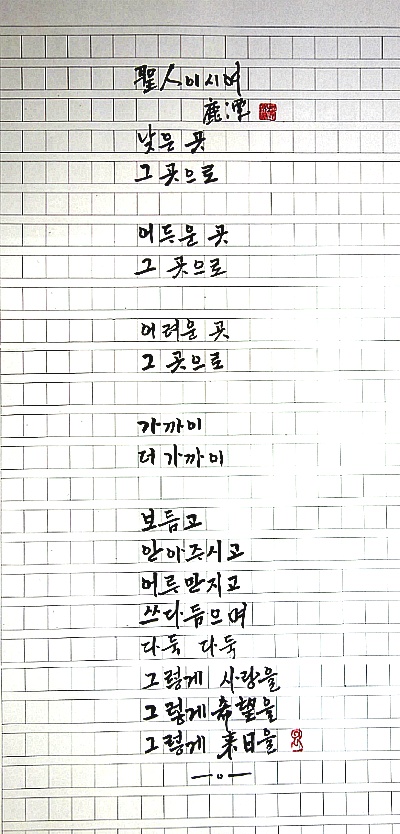 聖人이시여
鹿潭
낮은 곳
그 곳으로
어두운 곳
그 곳으로
어려운 곳
그 곳으로
가까이
더 가까이
보듬고
안아주시고
어루만지고
쓰다듬으며
다둑 다둑
그렇게 사랑을
그렇게 希望을
그렇게 来日을